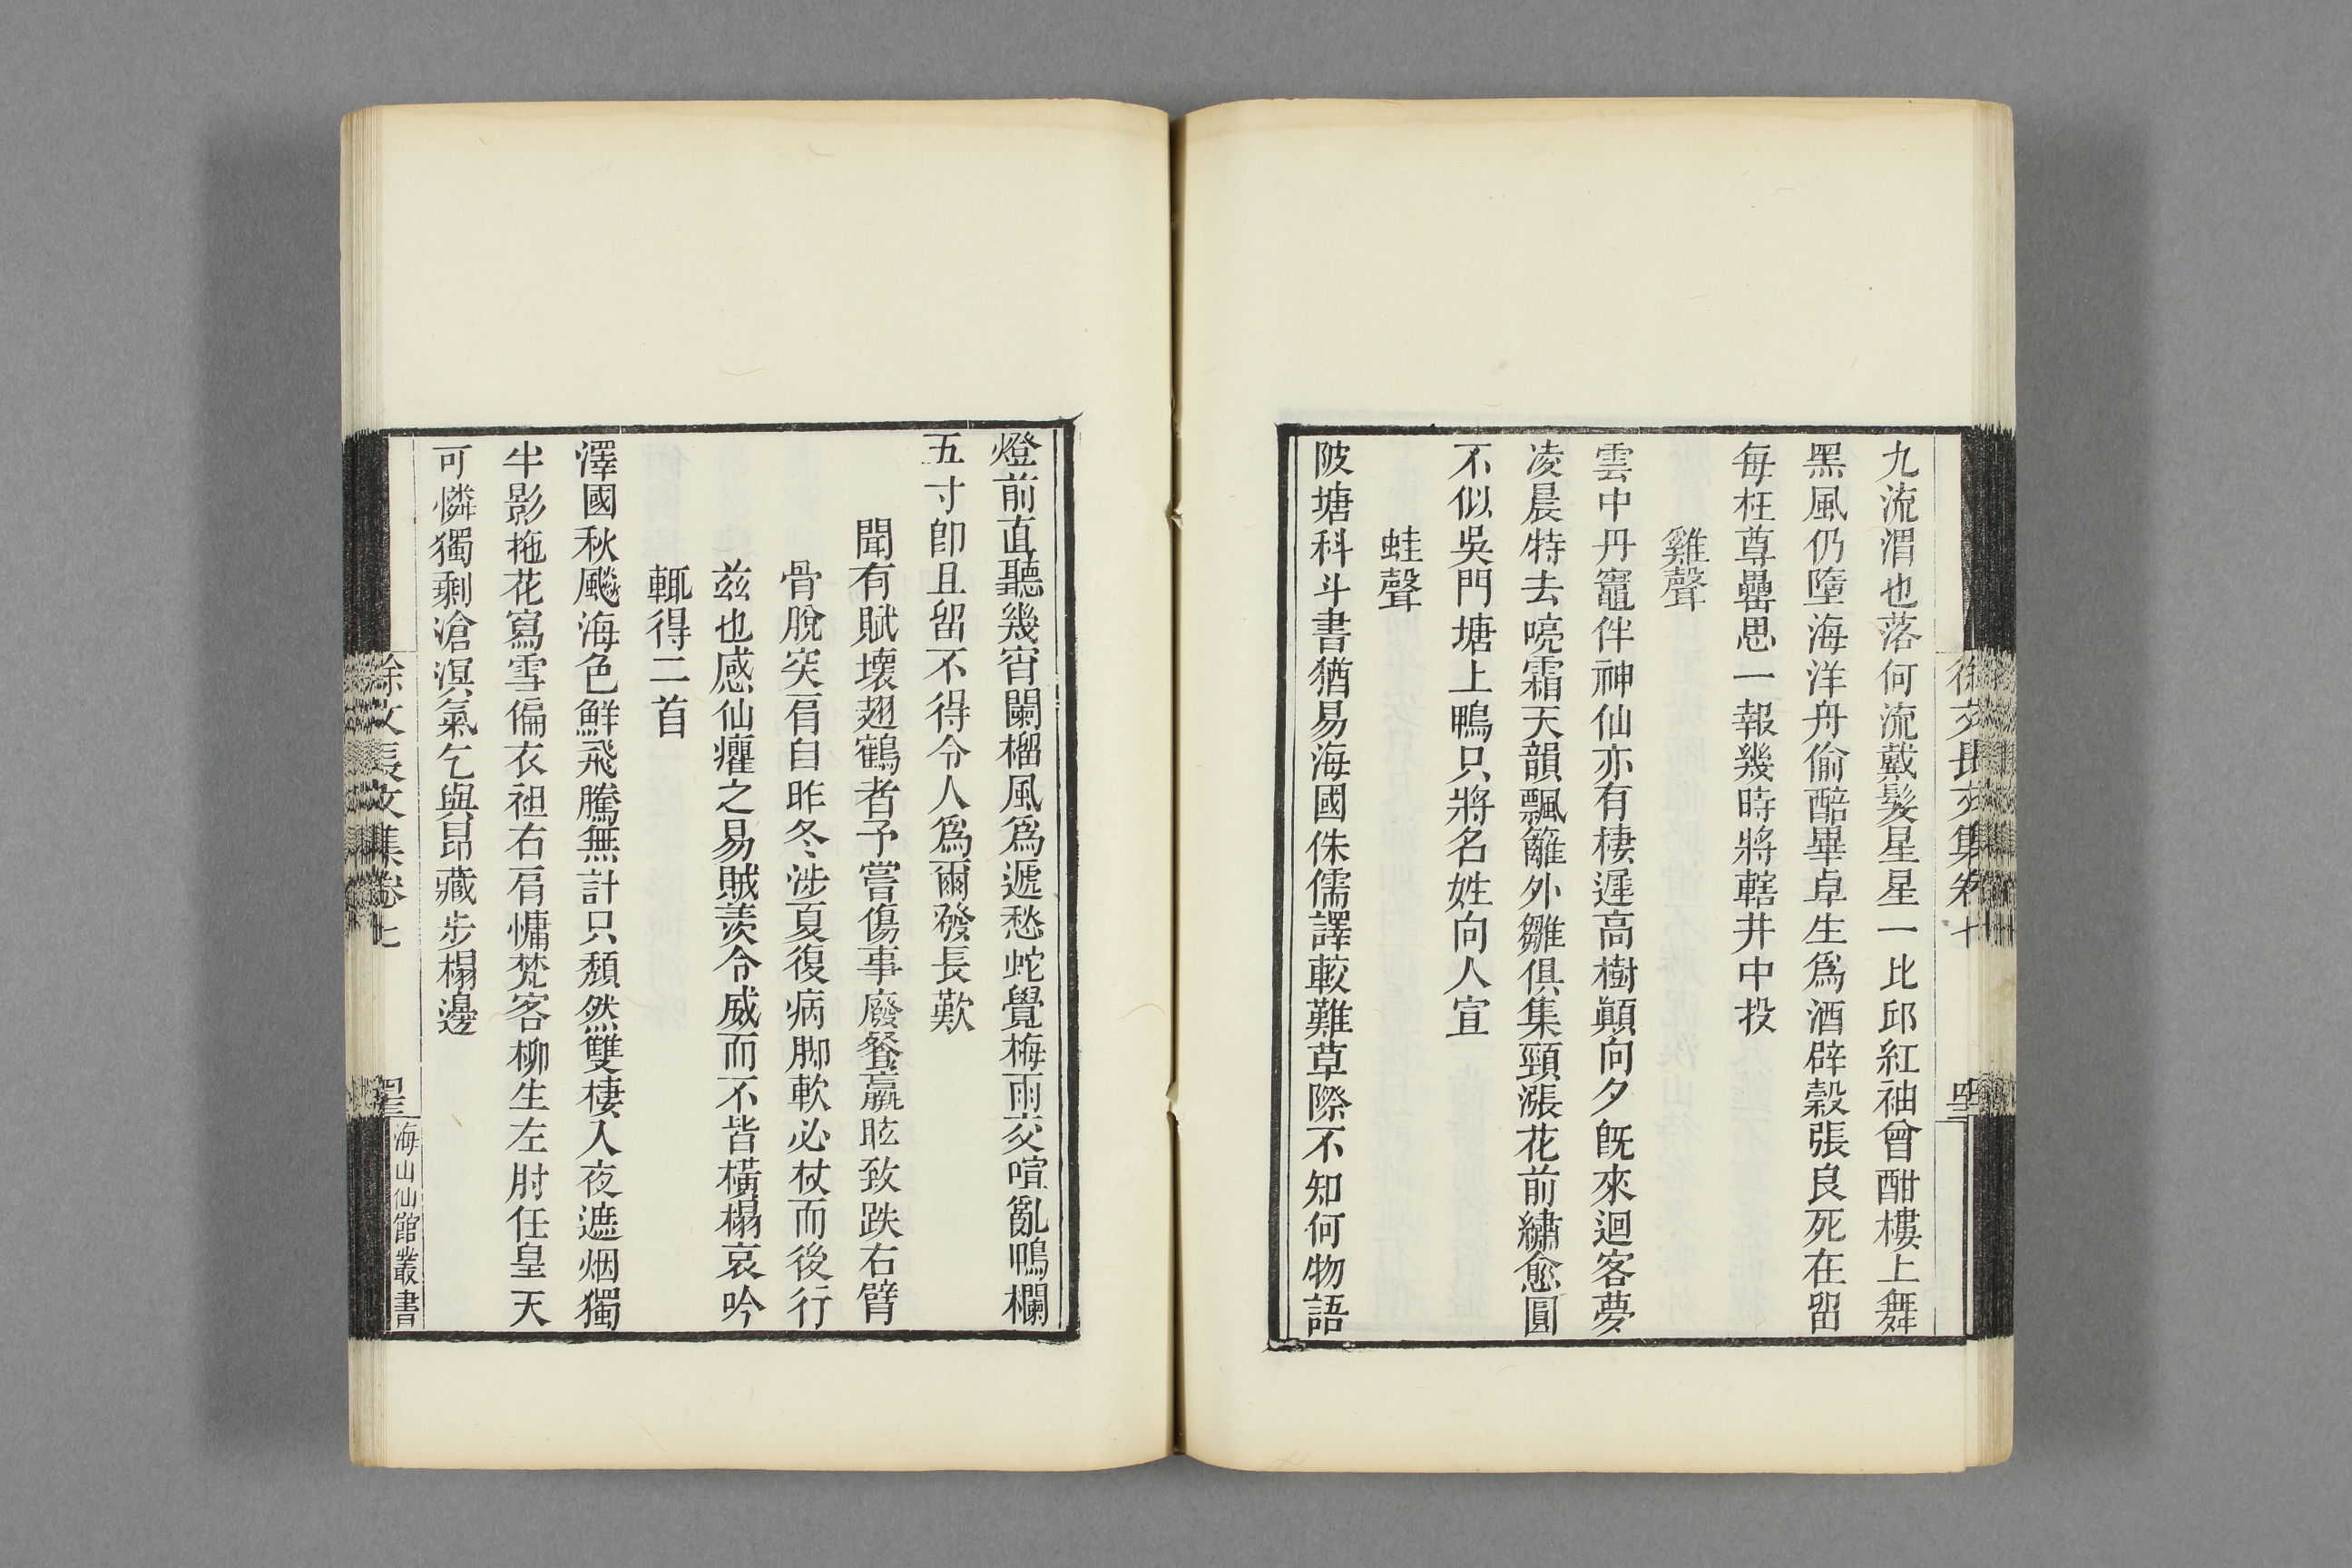 九流渭也落何流戴髮星星一比邱紅袖曾酣樓上舞
黑風仍墮海洋舟偷醅畢卓生爲酒辟穀張良死在留
每枉尊罍思一報幾時將轄井中投
雞聲
雲中丹竈伴神仙亦有棲遲高樹顚向夕旣來迴客夢
凌晨特去喨霜天韻飄籬外雛俱集頸漲花前繡愈圓
不似吳門塘上鴨只將名姓向人宣
蛙聲
陂塘科斗書猶易海國侏儒譯較難草際不知何物語
燈前直聽幾宵闌榴風爲遞愁蛇覺梅雨交喧亂鴨欄
五寸卽且留不得令人爲爾發長歎
聞有賦壞翅鶴者予嘗傷事廢餐羸眩致跌右臂
骨脫突肩自昨冬涉夏復病脚軟必杖而後行
茲也感仙癯之易賊羨令威而不皆橫榻哀吟
輒得二首
澤國秋飈海色鮮飛騰無計只頹然雙棲入夜遮烟獨
半影拖花寫雪偏衣袒右肩慵梵客柳生左肘任皇天
可憐獨剩滄溟氣乞與昂藏步榻邊
徐文長文集卷七
海山仙館叢書